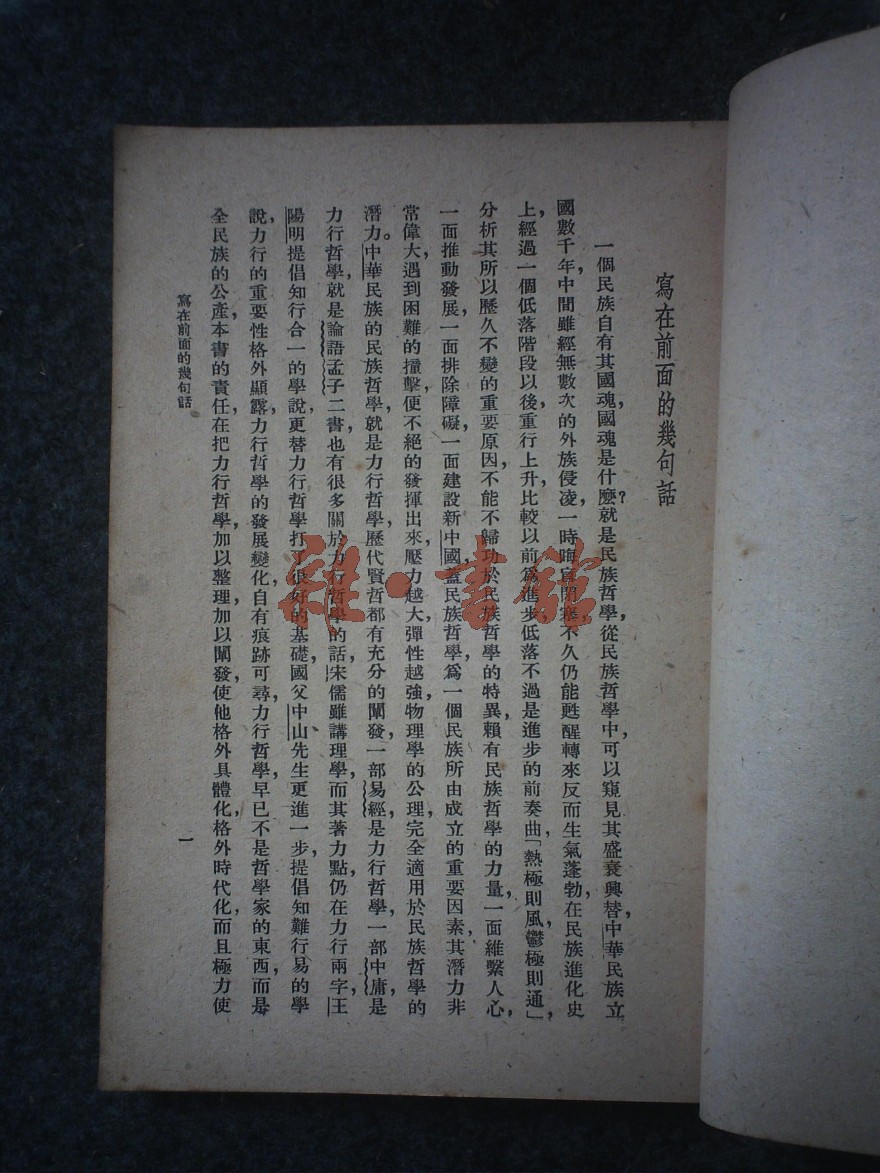 寫在前面的幾句話
一個民族自有其國魂,國魂是什麼?就是民族哲學,從民族哲學中,可以窺見其盛衰興替,中華民族立
國數千年,中間雖經無數次的外族侵凌,一時晦盲閉塞,不久仍能甦醒轉來,反而生氣蓬勃,在民族進化史
上,經過一個低落階段以後,重行上升,比較以前爲進步,低落不過是進步的前奏曲,「熱極則風,鬱極則通」,
分析其所以歷久不變的重要原因,不能不歸功於民族哲學的特異,賴有民族哲學的力量,一面維繫人心,
一面推動發展,一面排除障礙,一面建設新中國,蓋民族哲學,爲一個民族所由成立的重要因素,其潛力非
常偉大,遇到困難的撞擊,便不絕的發揮出來,壓力越大,彈性越強,物理學的公理,完全適用於民族哲學的
潛力。中華民族的民族哲學,就是力行哲學,歷代賢哲都有充分的闡發,一部易經,是力行哲學,一部中庸,是
力行哲學,就是論語孟子二書,也有很多關於力行哲學的話,宋儒雖講理學,而其著力點,仍在力行兩字,王
陽明提倡知行合一的學說,更替力行哲學打了很好的基礎,國父中山先生更進一步,提倡知難行易的學
說,力行的重要性格外顯露,力行哲學的發展變化,自有痕跡可尋,力行哲學,早已不是哲學家的東西,而是
全民族的公產,本書的責任,在把力行哲學,加以整理,加以闡發,使他格外具體化,格外時代化,而且極力使
寫在前面的幾句話
一
雜·書館